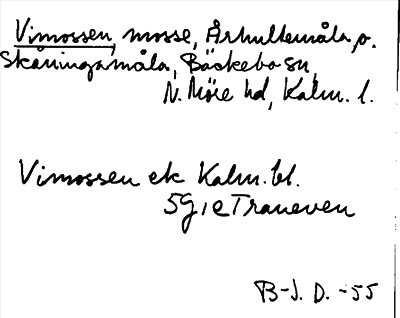 Vimossen, mosse, Århultemåla, o.
Skåningsmåla, Bäckebo sn,
N. Möre hd, Kalm. l.
Vimossen ek Kalm. bl.
5G, e Traneven
B-J. D. -55